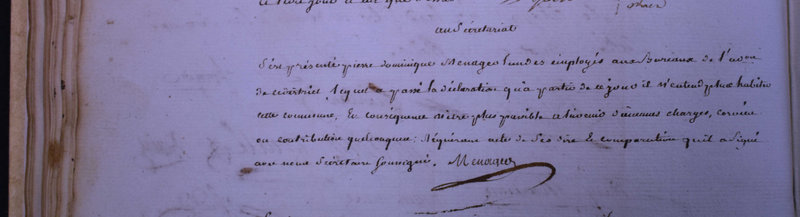 au Secretariat
S'est présenté pierre dominique Menageo l'un des employés aux Bureaux de l'
de lequel a passé la déclaration qu'a partir de ce jour il n'entend plus habiter
cette commune, En conséquence n'être plus passible a l'avenir d'aucunes charges, corvées
ou contribution quelconques: Réquérant acte de Ses dire & comparution qu'il a Signé
avec nous Secrétaire Soussigné. Menageo